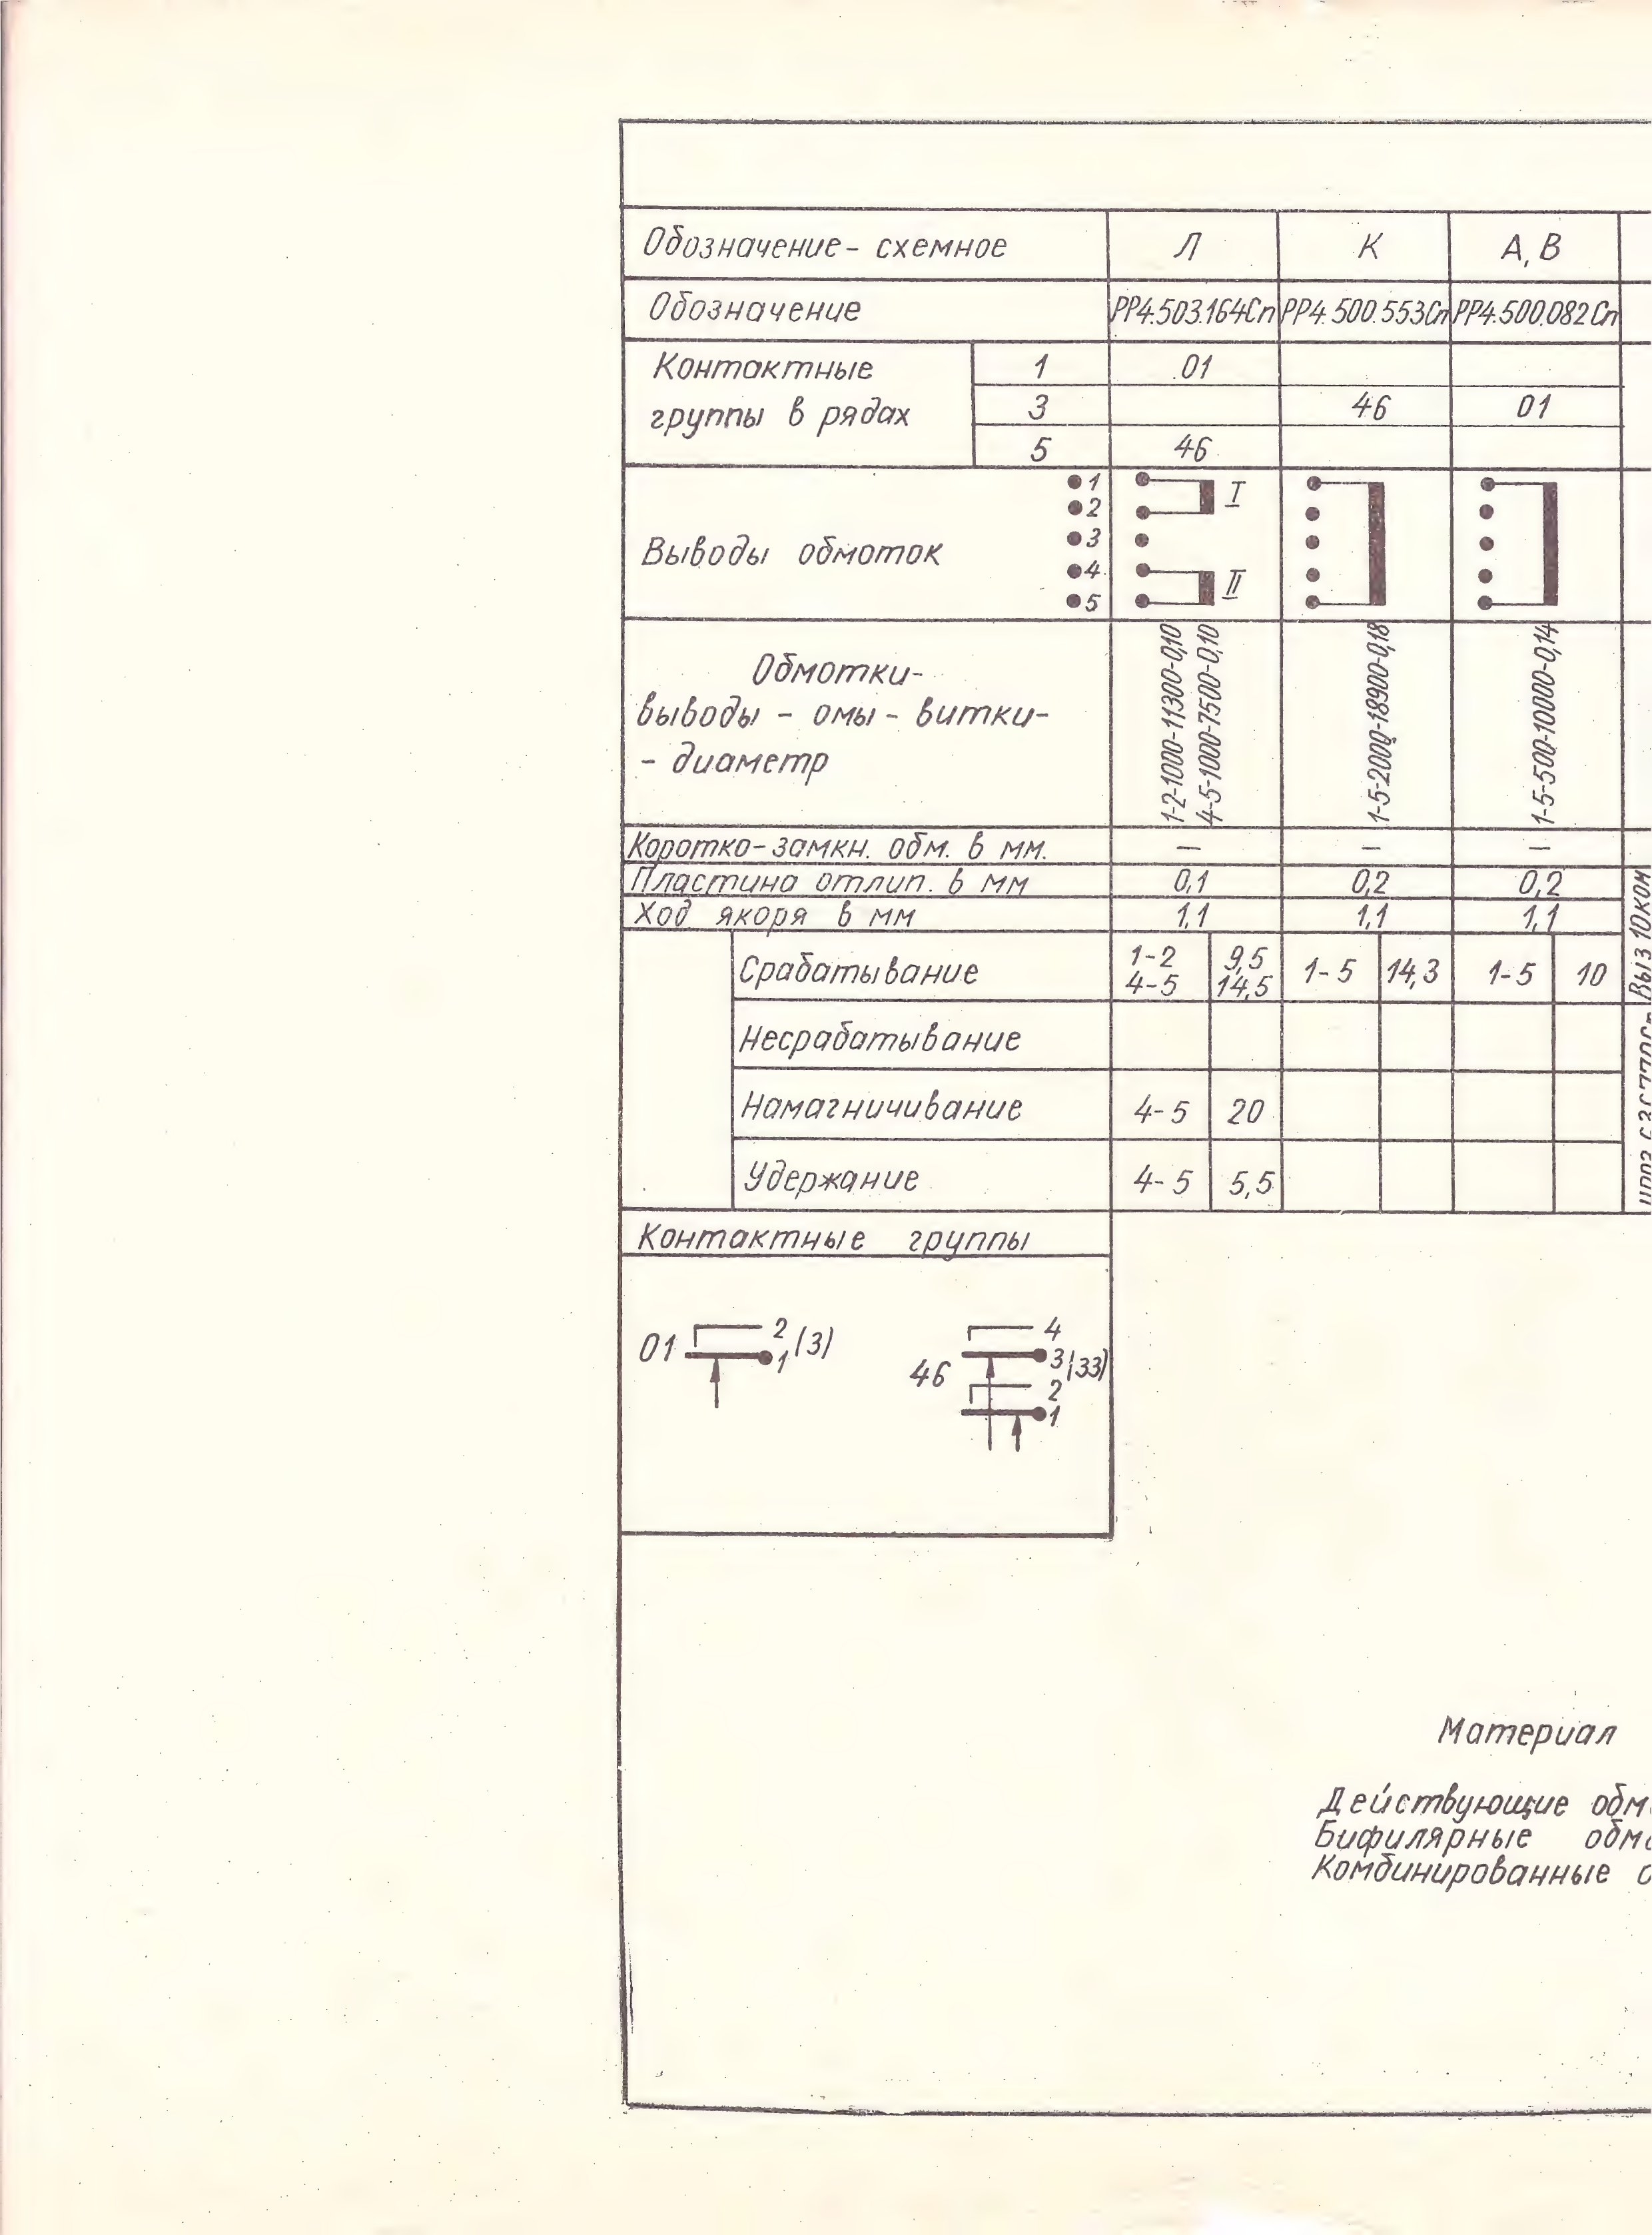 Обозначение - схемное Л К А, В
Обозначение РР4.503.164Сп РР4.500.553Сп РР4.500.082Сп
Контактные 1 01
группы в рядах 3 46 01
5 46
1 I
2
Выводы обмоток 3
4 II
5
Обмотки-
выводы - омы - витки-
- диаметр
1-2-1000-11300-0,10
4-5-1000-7500-0,10
1-5-2000-18900-0,18
1-5-500-10000-0,14
Коротко-замкн. обм. в мм. — — —
Пластина отлип. в мм 0,1 0,2 0,2
Ход якоря в мм 1,1 1,1 1,1
Срабатывание 1-2 9,5 1-5 14,3 1-5 10
4-5 14,5
Несрабатывание
Намагничивание 4-5 20
Удержание 4-5 5,5
Выз 10ком
Контактные группы
01 2 (3)
1
46 4
3 (33)
2
1
Материал
Действующие обм
Бифилярные обм
Комбинированные